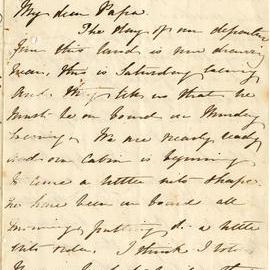 My dear Papa
The day of our departure
from this land is now drawing
near, this is Saturday evening
and they tell us that we
must be on board on Monday
evening. We are nearly ready
and our cabin is beginning
to come a little into shape.
We have been on board all
morning putting it a little
into order. I think I